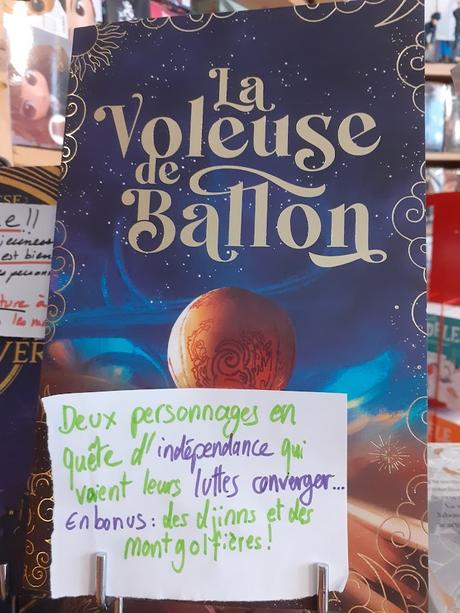 La
Voleuse
de
Ballon
Deux personnages en
quête d'indépendance qui
voient leurs luttes converger...
En bonus : des djinns et des
montgolfières !
e !!
jeunesse
est bien
personn
ture à